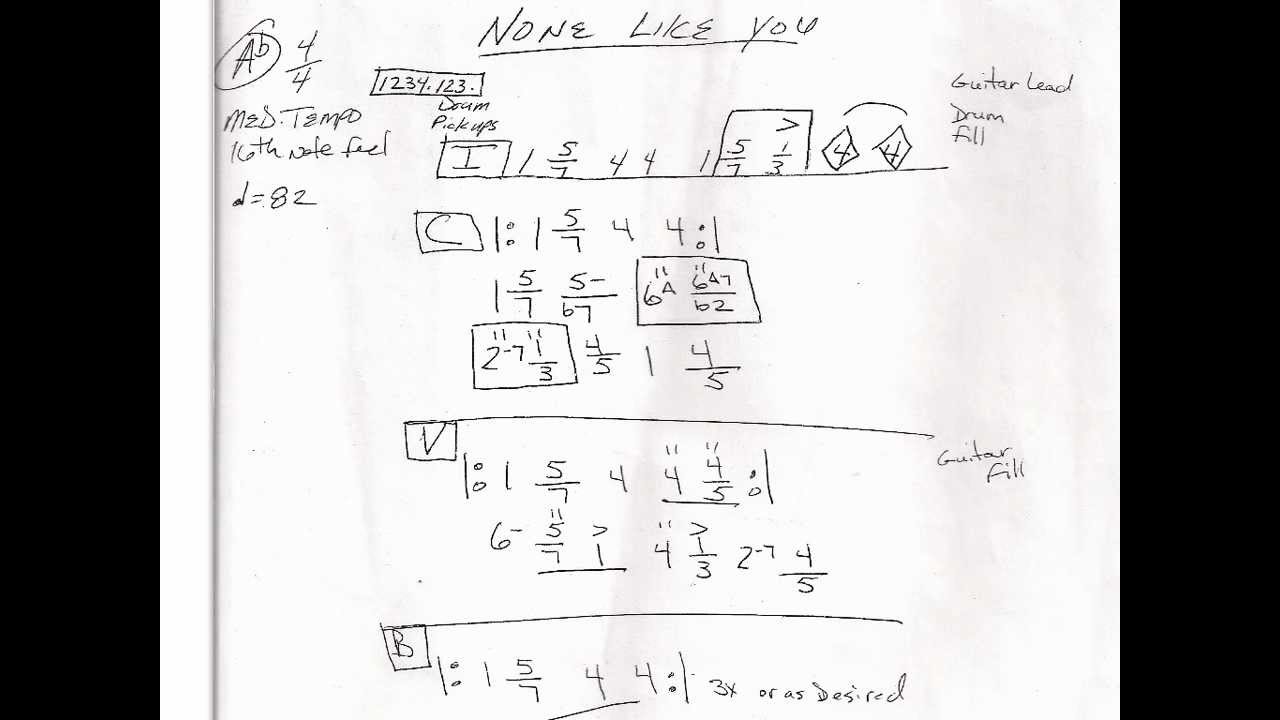 NONE LIKE YOU
Ab 4/4
1234.123.
Drum
Pickups
MED. TEMPO
16th note feel
d=82
Guitar Lead
Drum
fill
I 1 5/7 4 4 1 5/7 > 1/3 4 4
C |: 1 5/7 4 4 :|
1 5/7 5-/b7 6^Δ 6^Δ7/b2
2-7 1/3 4/5 1 4/5
V
Guitar
Fill
|: 1 5/7 4 4 4/5 :|
6- 5/7 > 1 4 > 1/3 2-7 4/5
B
|: 1 5/7 4 4 :| 3x or as Desired